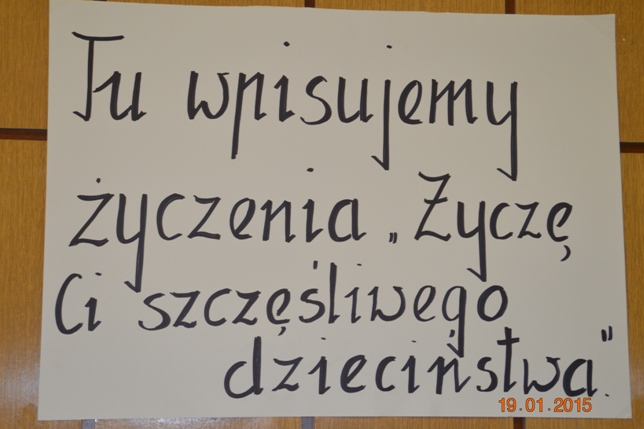 Tu wpisujemy
życzenia „Życzę
Ci szczęśliwego
dzieciństwa."
19.01.2015